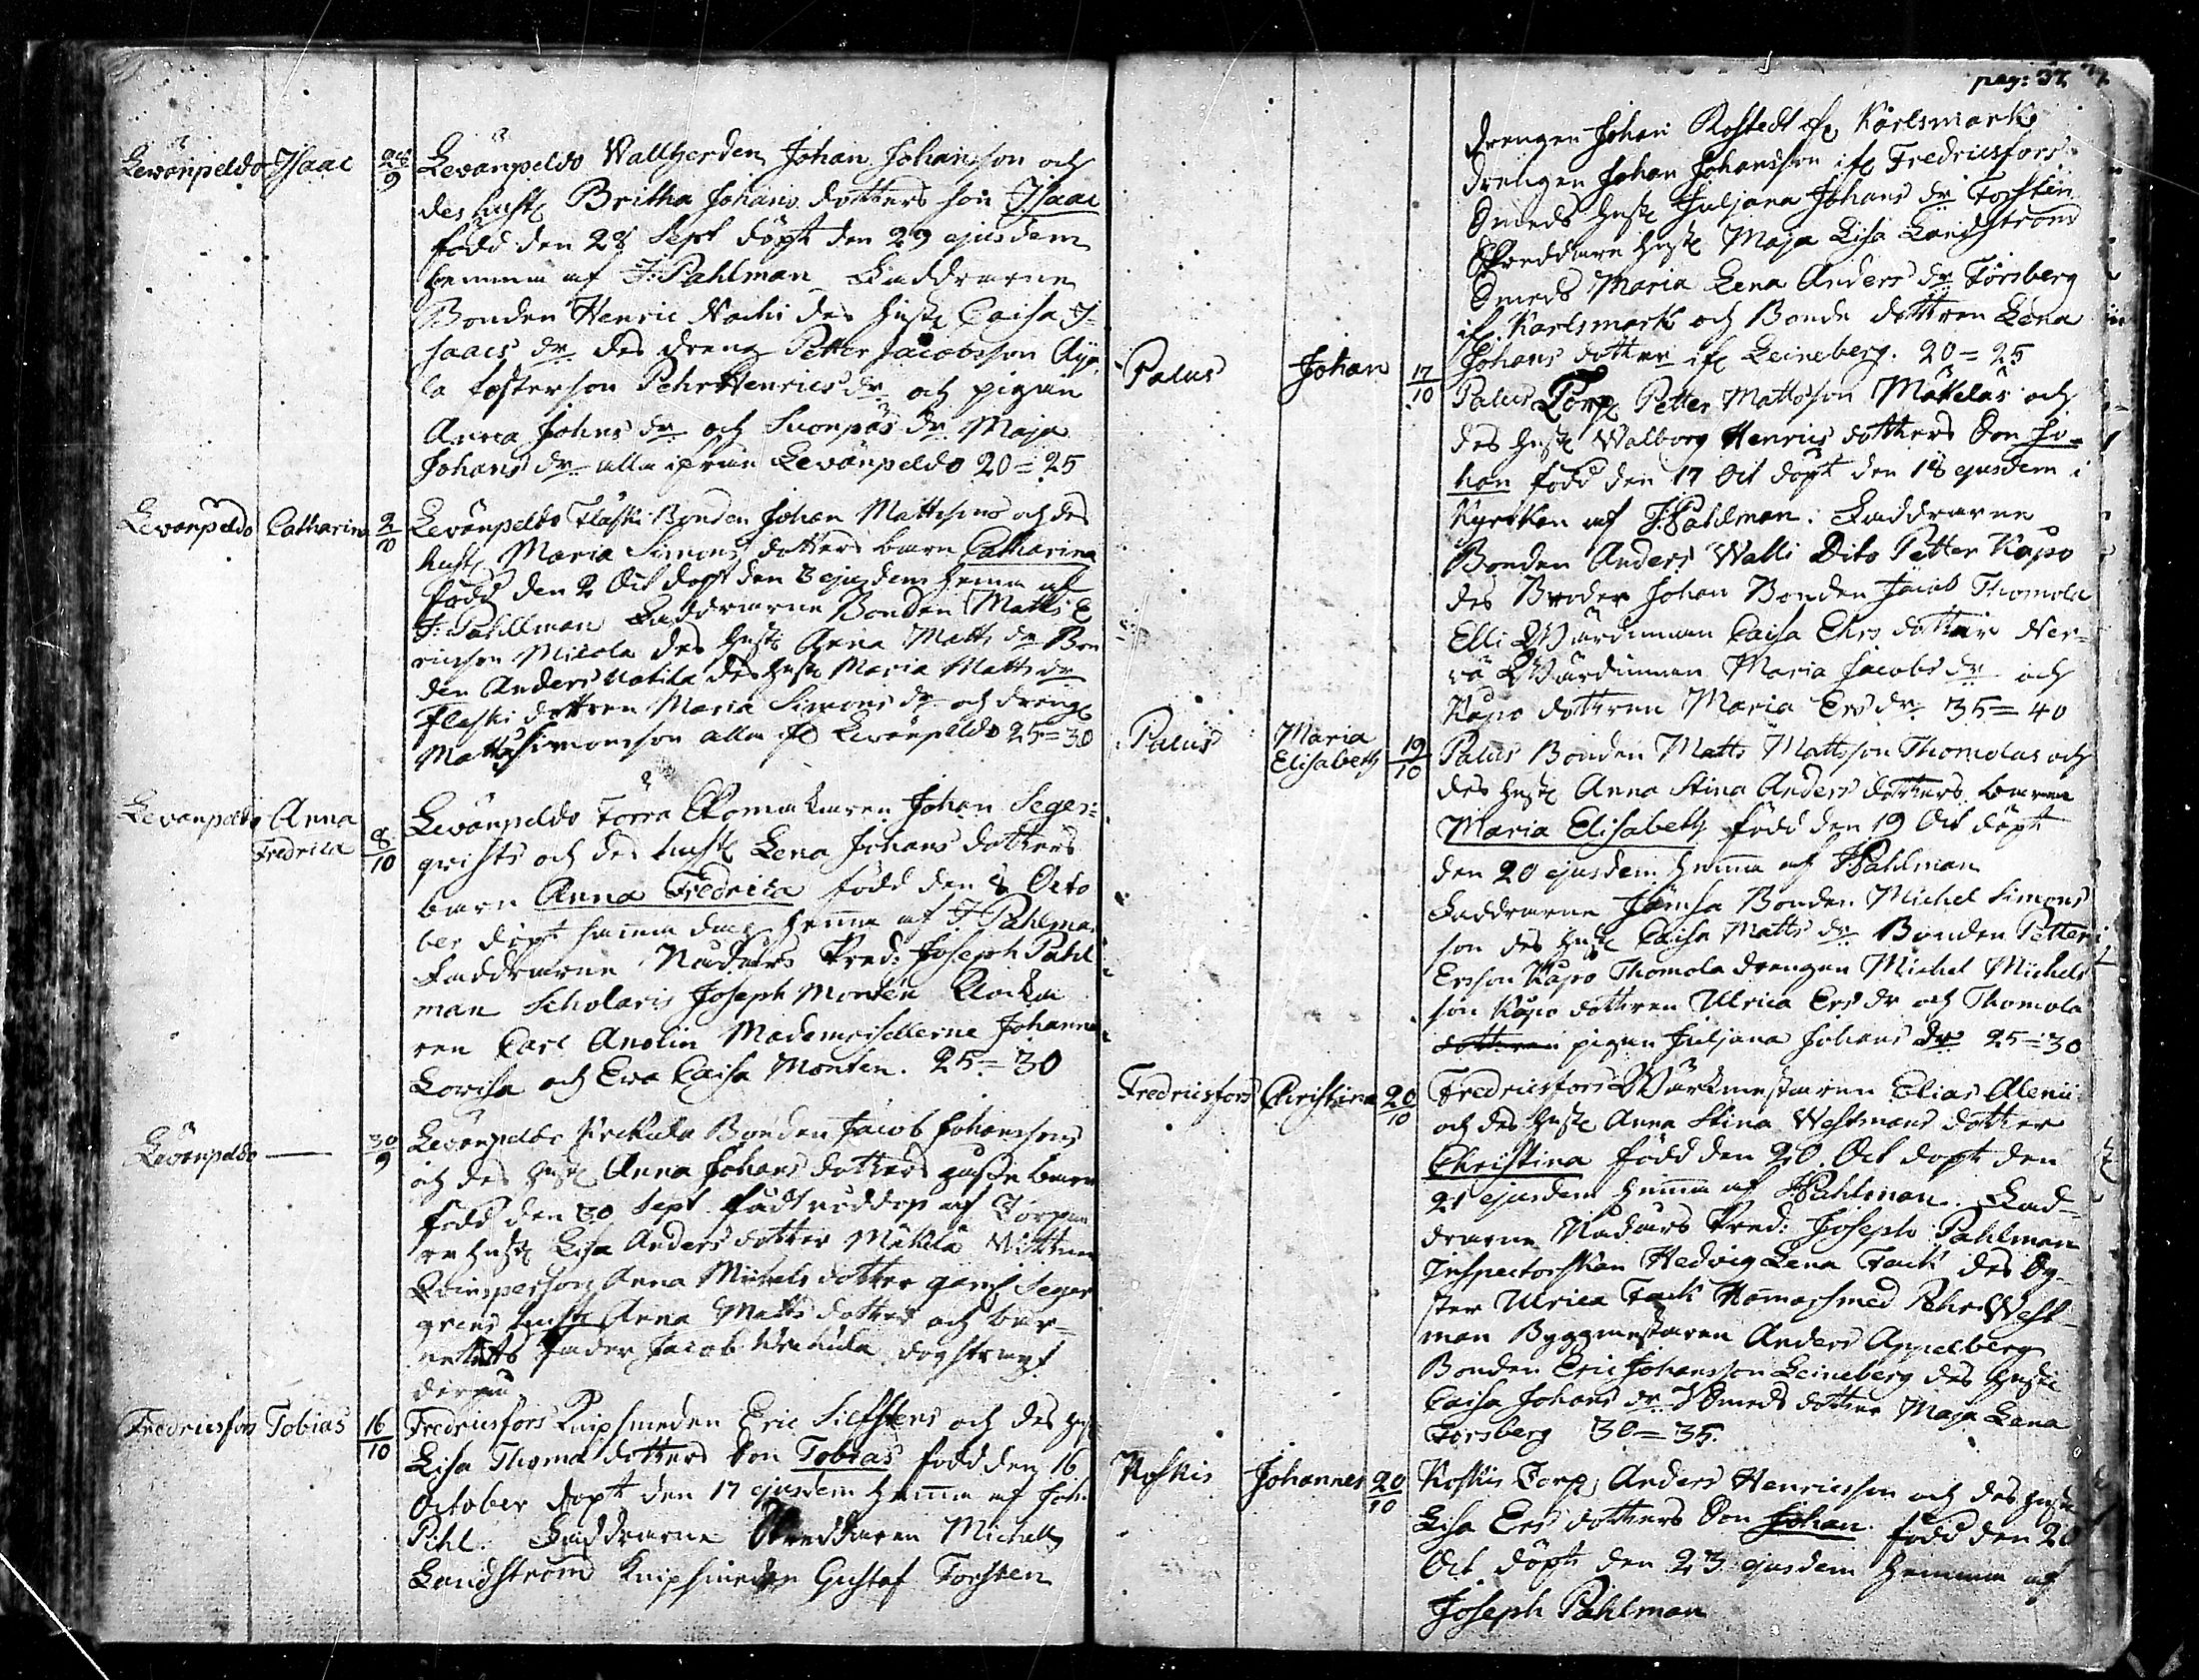 Levänpeldo Isaac 28/9 Levänpeldo Wallherden Johan Johansson och
des hust Britha Johans dotters son Isaac
född den 28 Sept döpt den 29 ejusdem
hemma af J: Pahlman Faddrarne
Bonden Henric des hust Caisa I-
saacs dr des dreng Petter Jacobsson
fosterson Pehr Henrics dr och pigan
Anna Johns dr och dr Maja
Johans dr alla ifrån Levänpeldo 20=25
Levänpeldo Catharina 2/10 Levänpeldo Flaski Bonden Johan Mattssons och des
hust Maria Simons dotters barn Catharina
född den 2 Oct döpt den 3 ejusdem hemma af
J: Pahllman Faddrarne Bonden Matts E
ricsson Micola des hust Anna Matts dr Bon
den Anders des hust Maria Matts dr
Flaski dottren Maria Simons dr och dreng
Matts Simonsson alla if Levänpeldo 25=30
Levänpeldo Anna Fredrica 8/10 Levänpeldo Törra Skomakaren Johan Seger=
qvists och des hust Lena Johans dotters
barn Anna Fredrica född den 8 Octo
ber döpt samma dag hemma af J: Pahlman
Faddrarne Nådårs Pred: Joseph Pahl
man Scholaris Joseph Montén Klocka
ren Carl Anolin Mademoisellerne Johanna
Lovisa och Eva Caisa Montén. 25=30
Levänpeldo — 30/9 Levänpeldo Krekula Bonden Jacob Johanssons
och des hust Anna Johans dotters barn
född den 30 Sept nöddop af Torpa
re hust Lisa Anders dotter Mäkelä Wittnen
Qvinsperson Anna Michels dotter Seger
hust Anna Matts dotter och bar-
nets fader Jacob Krekula dog strax
derpå
Fredricsfors Tobias 16/10 Fredricsfors Knipsmeden Eric Siefstens och des hu
Lisa Thomæ dotters Son Tobias född den 16
October döpt den 17 ejusdem hemma af Joh:
Pihl. Faddrarne Skreddaren Michell
Landström Knipsmeden Gustaf Torsten
pag: 37
drengen Johan Rostedt if Karlsmark
drengen Johan Johansson if Fredricsfors
Smeds hust Juljana Johans dr Torstén
Skreddare hust Maja Lisa Landströms
Smeds Maria Lena Anders dr Forsberg
if. Karlsmark och Bonde dottren Lena
Johans dotter if Leineberg. 20=25
Palus Johan 17/10 Palus Torp Petter Mattsson Mäkeläs och
des hust Walborg Henrics dotters Son Jo-
han född den 17 Oct döpt den 18 ejusdem i
Kyrckan af J: Pahlman. Faddrarne
Bonden Anders Walli Dito Petter Kapo
des Broder Johan Bonden Jacob Thomola
Elli Wärdinnan Caisa Ehrs dotter Ner=
vä Wärdinnan Maria Jacobs dr och
Kapo dottren Maria Ers dr 35=40
Palus Maria Elisabeth 19/10 Palus Bonden Matts Mattsson Thomolas och
des hust Anna Stina Anders dotters barn
Maria Elisabeth född den 19 Oct döpt
den 20 ejusdem hemma af J: Pahlman
Faddrarne Jämsa Bonden Michel Simons
son des hust Caisa Matts dr Bonden Petter
Ersson Kapo Thomola drengen Michel Michels
son Kapo dottren Ulrica Ers dr och Thomola
dottren pigan Juljana Johans dr 25=30
Fredricsfors Christina 20/10 Fredricsfors Wärkmestaren Elias Alenii
och des hust Anna Stina Westmans dotter
Christina född den 20. Oct döpt den
21 ejusdem hemma af J: Pahlman. Fad-
drarne Nådårs Pred: Joseph Pahlman
Inspectorskan Hedvig Lena Tack des Sy-
ster Ulrica Tack Hamarsmed Pehr West-
man Byggmestaren Anders Appelberg
Bonden Eric Johansson Leineberg des hust
Caisa Johans dr Smeds dotter Maja Lena
Forsberg 30=35.
Koskis Johannes 20/10 Koskis Torp Anders Henricsson och des hust
Lisa Ers dotters Son Johan född den 20
Oct döpt den 23 ejusdem hemma af
Joseph Pahlman